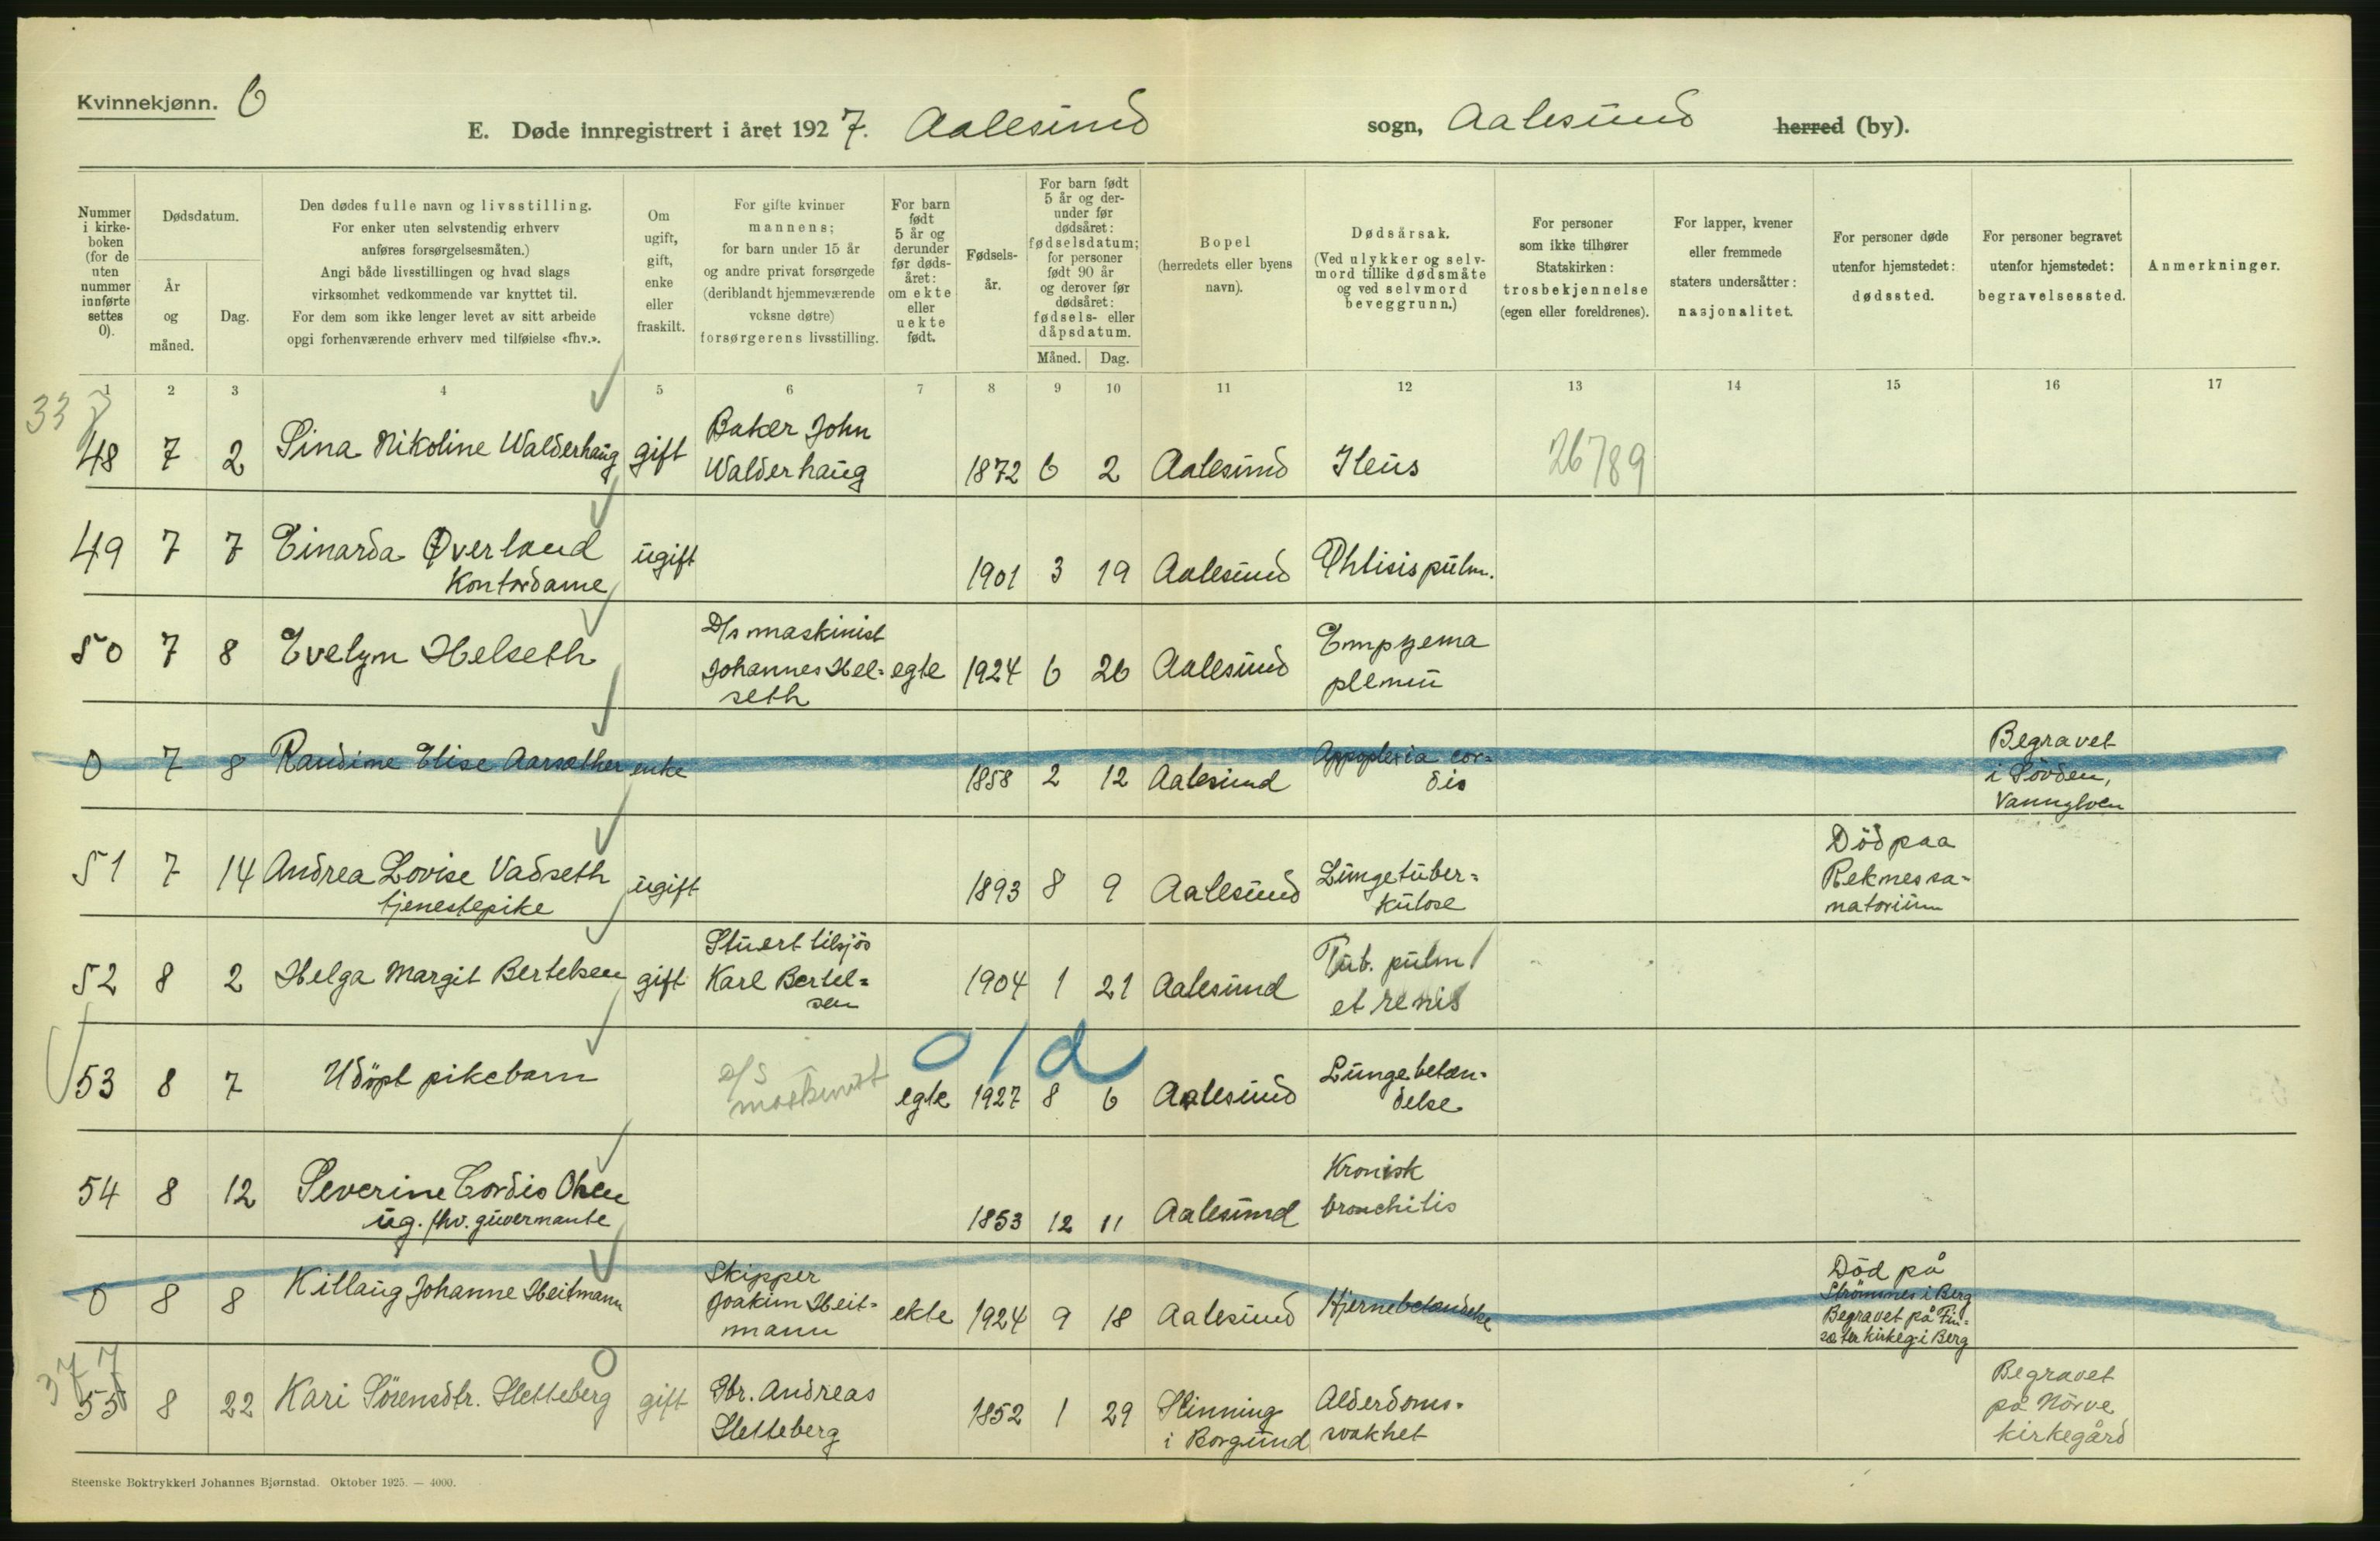 Kvinnekjønn. 6
E. Døde innregistrert i året 1927. Aalesund sogn, Aalesund herred (by).
Nummer i kirkeboken (for de uten nummer innførte settes 0).
Dødsdatum.
År og måned.
Dag.
Den dødes fulle navn og livsstilling.
For enker uten selvstendig erhverv
anføres forsørgelsesmåten.)
Angi både livsstillingen og hvad slags
virksomhet vedkommende var knyttet til.
For dem som ikke lenger levet av sitt arbeide
opgi forhenværende erhverv med tilføielse «fhv.».
Om ugift, gift, enke eller fraskilt.
For gifte kvinner
mannens;
for barn under 15 år
og andre privat forsørgede
(deriblandt hjemmeværende
voksne døtre)
forsørgerens livsstilling.
For barn født 5 år og derunder før dødsåret: om ekte eller uekte født.
Fødselsår.
For barn født 5 år og derunder før dødsåret: fødselsdatum; for personer født 90 år og derover før dødsåret: fødsels- eller dåpsdatum.
Måned. Dag.
Bopel
(herredets eller byens
navn).
Dødsårsak.
(Ved ulykker og selvmord tillike dødsmåte og ved selvmord beveggrunn.)
For personer
som ikke tilhører
Statskirken:
trosbekjennelse
(egen eller foreldrenes).
For lapper, kvener
eller fremmede
staters undersåtter:
nasjonalitet.
For personer døde
utenfor hjemstedet:
dødssted.
For personer begravet
utenfor hjemstedet:
begravelsessted.
Anmerkninger.
1 2 3 4 5 6 7 8 9 10 11 12 13 14 15 16 17
33
48 7 2 Sina Nikoline Walderhaug gift Baker John Walderhaug 1872 6 2 Aalesund Ileus 26789
49 7 7 Einarda Øverland Kontordame ugift 1901 3 19 Aalesund Phtisis pulm.
50 7 8 Evelyn Helseth D/s maskinist Johannes Hel=seth egte 1924 6 26 Aalesund Empyema
0 7 8 Randine Elise Aarsæther enke 1858 2 12 Aalesund Appoplexia cor=dis Begravet i Sövden,
51 7 14 Andrea Lovise Vadseth tjenestepike ugift 1893 8 9 Aalesund Lungetuber=kulose Död paa Reknessa=natorium
52 8 2 Helga Margit Bertelsen gift Stuert tilsjös Karl Bertel=sen 1904 1 21 Aalesund Tub. pulm et renis
53 8 7 Udöpt pikebarn D/S maskinist egte 1927 8 6 Aalesund Lungebetæn=delse
0/d
54 8 12 Severine Cordis Olsen ug. fhv. guvernante 1853 12 11 Aalesund Kronisk bronchitis
0 8 8 Killaug Johanne Heitmann Skipper Joakim Heit=mann ekte 1924 9 18 Aalesund Hjernebetændelse Död på Strömmes i Berg Begravet på Fin=sæter kirkeg. i Berg
37
55 8 22 Kari Sörensdtr. Sletteberg gift Gbr. Andreas Sletteberg 1852 1 29 Slinning i Borgund Alderdoms=svakhet Begravet på Nörve kirkegård
Steenske Boktrykkeri Johannes Bjørnstad. Oktober 1925. — 4000.